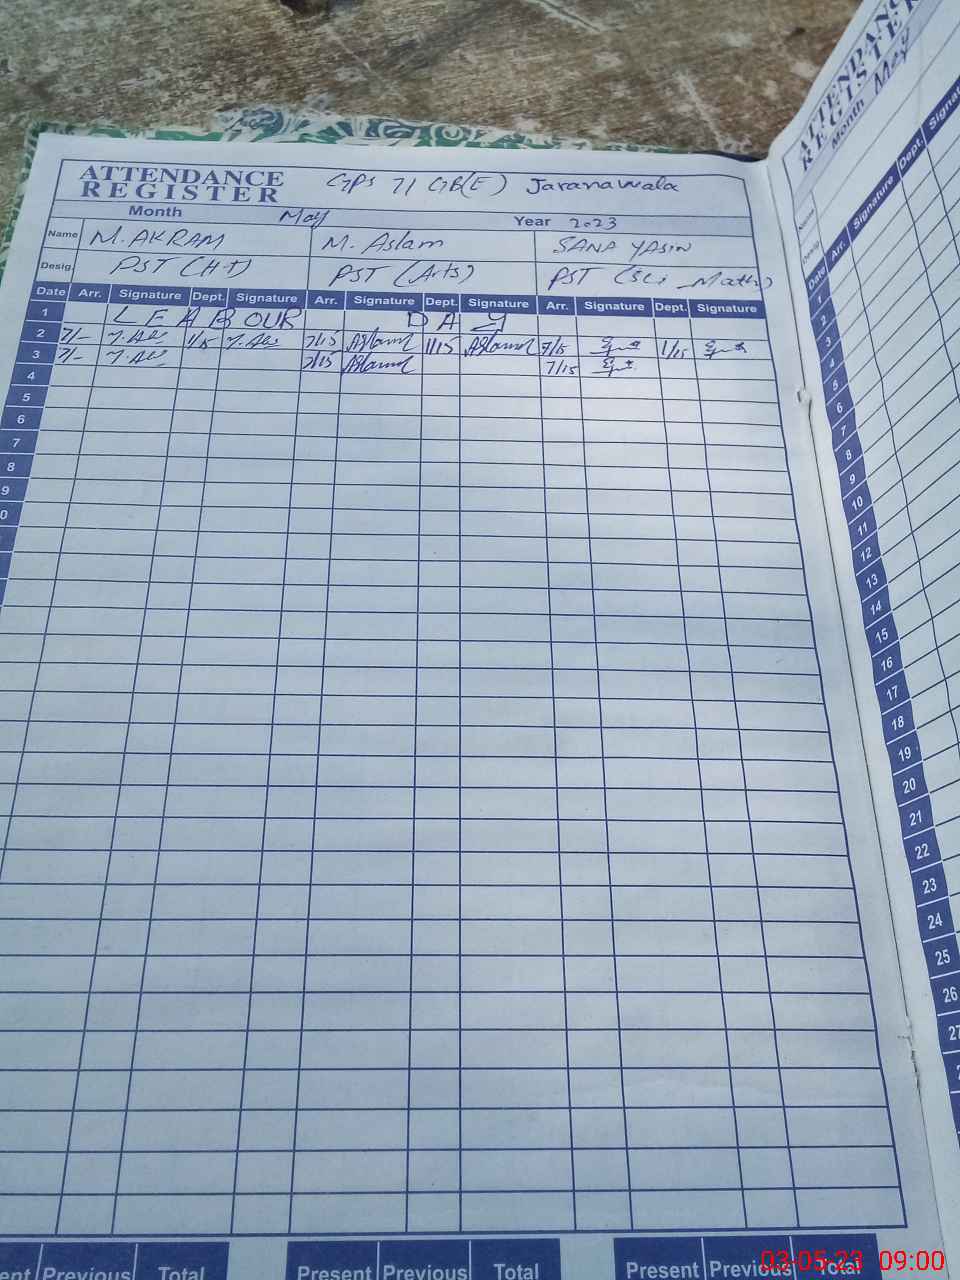 ATTENDANCE REGISTER GPS 71 GB(E) Jaranawala
Month May Year 2023
Name M. AKRAM M. Aslam SANA YASIN
Desig. PST (H-T) PST (Arts) PST (Sci _Math)
Date Arr. Signature Dept. Signature Arr. Signature Dept. Signature Arr. Signature Dept. Signature
1 LEABOUR DAY
2 7/- 1/15 7/15 Aslam 1/15 Aslam 7/15 1/15
3 7/- 7/15 Aslam 7/15
4
5
6
7
8
9
0
Present Previous Total Present Previous Total
ent Previous Total
ATTENDANC
REGISTER
Month May
Name
Desig.
Date Arr. Signature Dept. Signatur
1
2
3
4
5
6
7
8
9
10
11
12
13
14
15
16
17
18
19
20
21
22
23
24
25
26
27
03-05-23 09:00